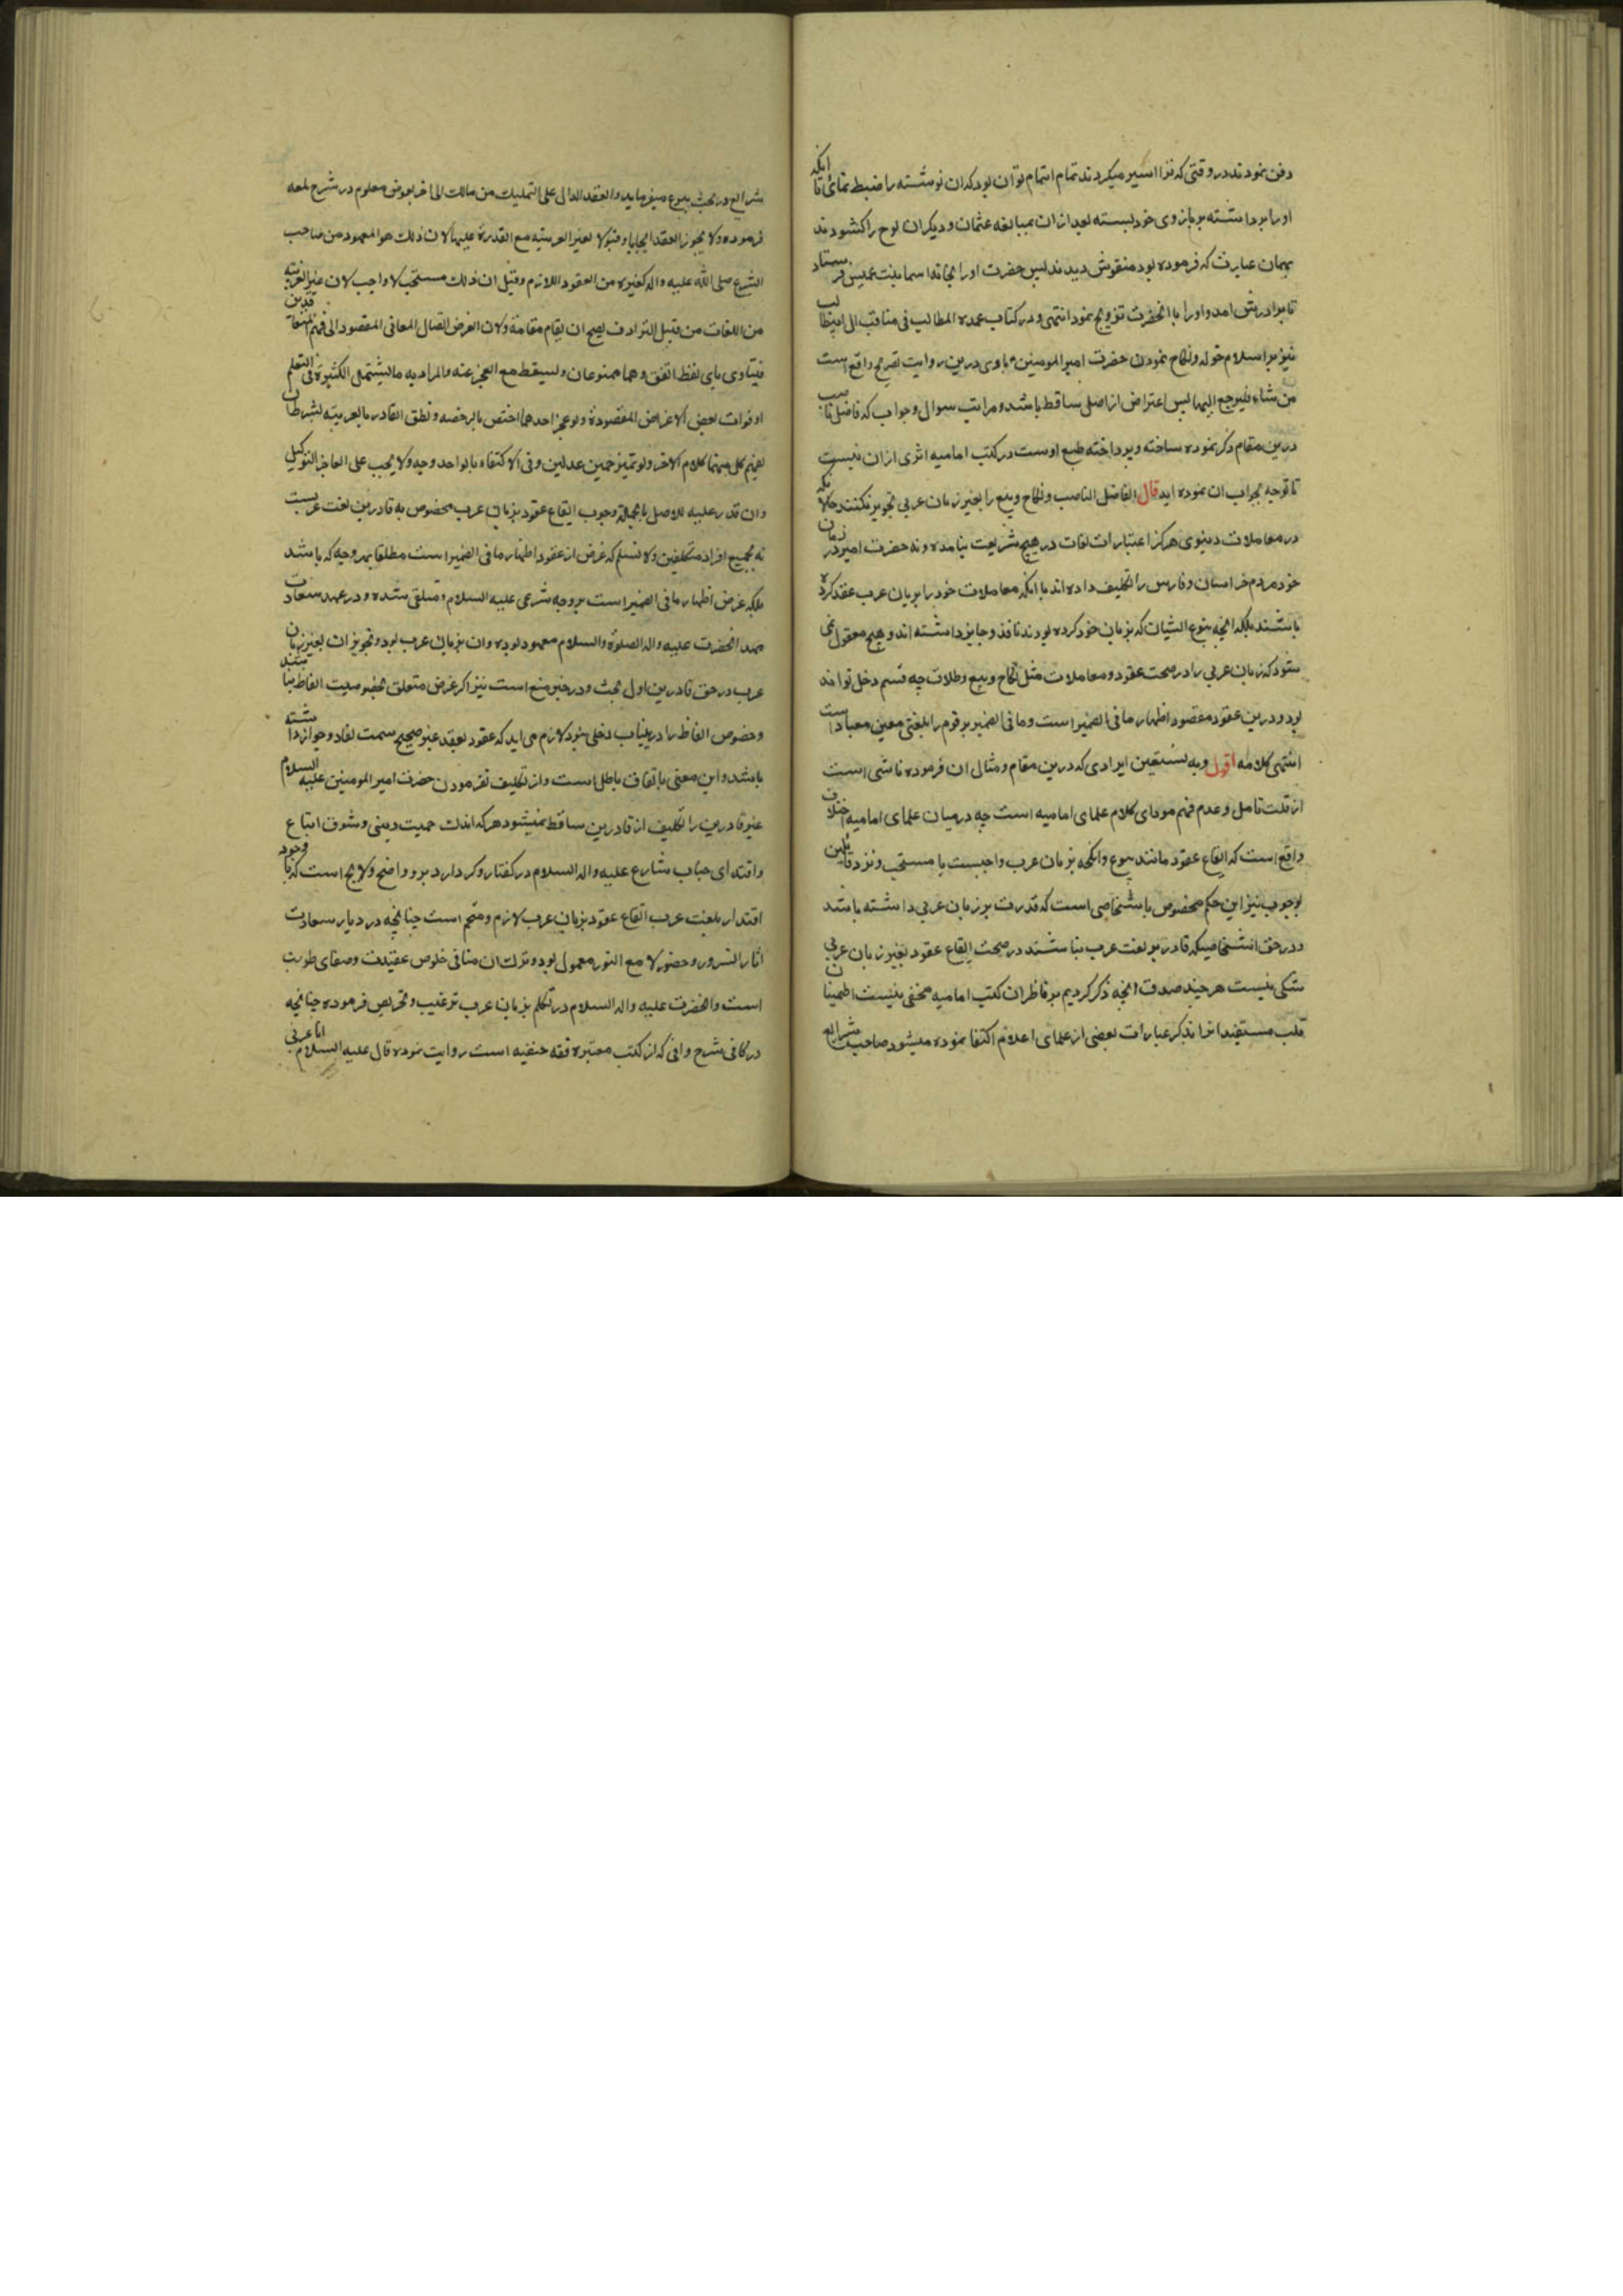 دفن نمودند در وقتی که ترا اسیر میکردند تمام اهتمام تو آن بود که ان نوشته را ضبط نمائی تا انکه
او را برداشته بر بازوی خود بسته بعد از ان بمبالغه عثمان و دیگران لوح را کشودند
بهمان عبارت که فرموده بود منقوش دیدند پس حضرت او را بخانه اسما بنت عمیس فرستاد
تا برادرش امد و او را با انحضرت تزویج نمود انتهی و در کتاب عمده المطالب فی مناقب ال ابیطالب
نیز بر اسلام خوله و نکاح نمودن حضرت امیر المومنین با وی درین روایت تصریح واقع است
من شاء فلیرجع الیهما پس اعتراض از اصل ساقط باشد و مراتب سوال و جواب که فاضل ناصب
درین مقام ذکر نموده ساخته و پرداخته طبع اوست در کتب امامیه اثری ازان نیست
تا توجیه بجواب ان نموده اید قال الفاضل الناصب و نکاح و بیع را بغیر زبان عربی تجویز نکنند حالانکه
در معاملات دنیوی هرکز اعتبار ات لغات در هیچ شریعت نیامده و نه حضرت امیر در زمان
خود مردم خراسان و فارس را تکلیف داده اند با انکه معاملات خود را بزبان عرب عقد کرده
باشند بلکه انچه بنوع ایشان که بزبان خود کرده بودند نافذ و جایز داشته اند و هیچ معقول نمی
شود که زبان عربی را در صحت عقود و معاملات مثل نکاح و بیع و طلاق چه قسم دخل تواند
بود و درین عقود مقصود اظهار ما فی الضمیر است و ما فی الضمیر هر قوم را بلغتی معین معتاد است
انتهی کلامه اقول و به نستعین ایرادی که درین مقام و مثال ان فرموده ناشی است
از قلت تامل و عدم فهم مودای کلام علمای امامیه است چه در میان علمای امامیه اختلاف
واقع است که ایقاع عقود مانند بیوع و انکحه بزبان عرب واجبست یا مستحب و نزد قائلین
بوجوب نیز این حکم مخصوص باشخاصی است که قدرت بر زبان عربی داشته باشند
و در حق اشخاصیکه قادر بر لغت عرب نباشند در صحت ایقاع عقود بغیر زبان عربی
شکی نیست هر چند صدق انچه ذکر کردیم بر ناظران کتب امامیه مخفی نیست اطمینان
قلب مستفید انرا بذکر عبارات بعضی از علمای اعلام اکتفا نموده میشود صاحب شرایع
شرایع در بحث بیوع میفرماید و العقد الدال علی التملیک من مالک الی اخر بعوض معلوم در شرح لمعه
فرموده و لا یجوز العقد ایجابا و قبولا بغیر العربیه مع القدرة علیها لان ذلک هو المعهود من صاحب
الشرع صلی الله علیه و اله کغیره من العقود اللازم و قیل ان ذلک مستحب لا واجب لان غیر العربیه
من اللغات من قبیل المترادف یصح ان یقام مقامه و لان الغرض ایصال المعانی المقصود الی فهم المتعاقدین
فیتادی بای لفظ اتفق و هما ممنوعان و یسقط مع العجز عنه و المراد به ما یشتمل الکثیرة فی التعلم
او فوات بعض الاغراض المقصودة و لو عجز احدهما اختص بالرخصه و نطق القادر بالعربیه بشرط ان
یفهم کل منهما کلام الاخر و لو بمترجمین عدلین و فی الاکتفاء بالواحد وجه و لا یجب علی العاجز التوکیل
و ان قدر علیه للاصل بالجمله وجوب ایقاع عقود بزبان عرب مخصوص به قادرین لغت عربست
نه بجمیع افراد متکلفین و لا نسلم که غرض از عقود اظهار ما فی الضمیر است مطلقا بهر وجه که باشد
بلکه غرض اظهار ما فی الضمیر است بر وجه شرعی علیه السلام و متلقی شده و در عهد سعادت
مهد انحضرت علیه و اله الصلوة و السلام معهود بوده و ان بزبان عرب بود و تجویز ان بغیر زبان
عرب در حق قادرین اول بحث و در حیز منع است نیز اکر غرض متعلق بخصوصیت الفاظ نباشند
و خصوص الفاظ را درینباب دخلی نبود لازم می اید که عقود بعقد غیر صحیح سمت نفاد و جواز داشته
باشد و این معنی باتفاق باطل است و از تکلیف نفرمودن حضرت امیر المومنین علیه السلام
غیر قادرین را تکلیف از قادرین ساقط نمیشود هر که اندک حمیت دینی و شوق اتباع
و اقتدای جناب شارع علیه و اله السلام در کفتار و کردار دارد برو واضح و لایح است که با وجود
اقتدار بلغت عرب ایقاع عقود بزبان عرب لازم و متحتم است چنانچه در دیار سعادت
اثار السرور و حضور لامع النور معمول بود و ترک ان منافی خلوص عقیدت و صفای طویت
است و انحضرت علیه و اله السلام در تکلم بزبان عرب ترغیب و تحریص فرموده چنانچه
در کافی شرح وافی که از کتب معتبره فقه حنفیه است روایت نموده قال علیه السلام انا عربی